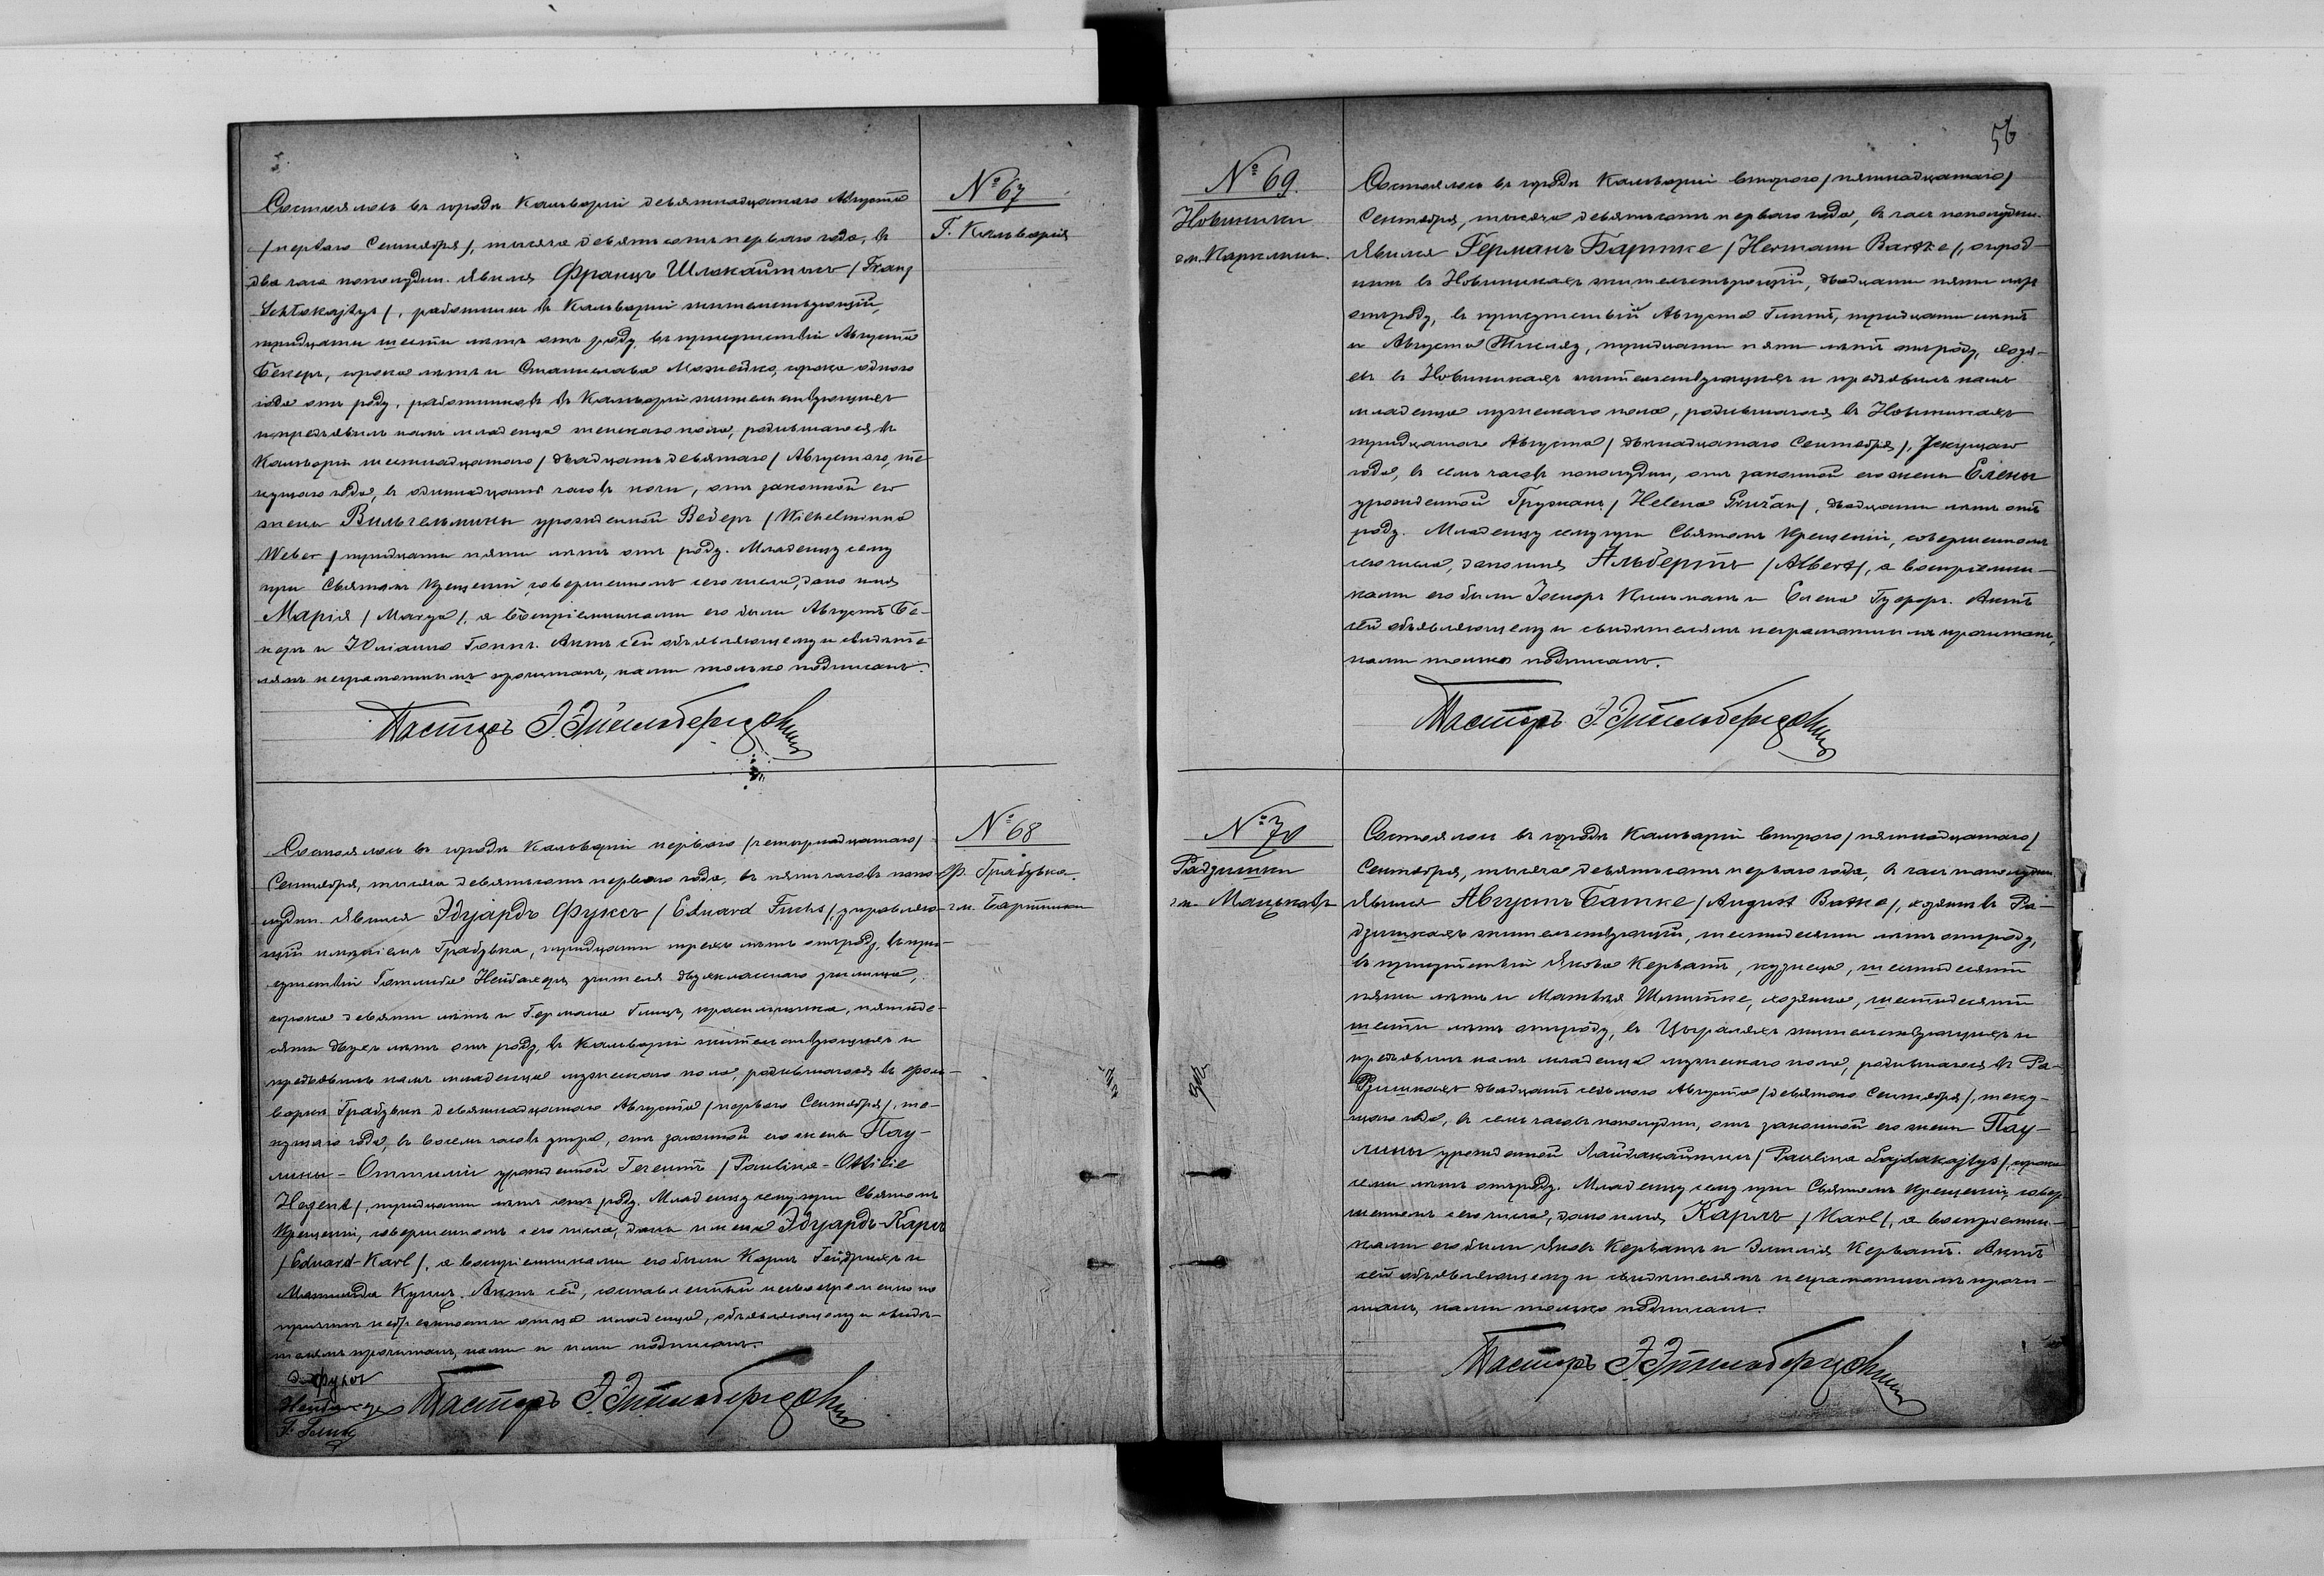 № 67
Г. Кальварія
Состоялось въ городѣ Кальваріи девятнадцатаго Августа
/перваго Сентября/, тысяча девятьсотъ перваго года, въ
два часа пополудни. Явился Францъ Шлакайтысъ /Franz
Schlokajtys/, работникъ въ Кальваріи жительствующій,
тридцати шести лѣтъ отъ роду, въ присутствіи Августа
Бекеръ, сорока лѣтъ и Станислава Можейко, сорока одного
года отъ роду, работниковъ въ Кальваріи жительствующихъ
и предъявилъ намъ младенца женскаго пола, родившагося въ
Кальваріи шестнадцатаго /двадцать девятаго/ Августа, те-
кущаго года, въ одиннадцать часовъ ночи, отъ законной его
жены Вильгельмины урожденной Веберъ /Wilhelmina
Weber/ тридцати пяти лѣтъ отъ роду. Младенцу сему
при Святомъ Крещеніи, совершенномъ сего числа, дано имя
Марія /Marya/, а воспріемниками его были Августъ Бе-
керъ и Юліанна Гоппъ. Актъ сей объявляющему и свидѣте-
лямъ неграмотнымъ прочитанъ, нами только подписанъ.
Пасторъ
№ 68
Ф. Грабувка
гм. Бартники
Состоялось въ городѣ Кальваріи перваго /четырнадцатаго/
Сентября, тысяча девятьсотъ перваго года, въ пять часовъ попо-
лудни. Явился Эдуардъ Фуксъ /Eduard Fuchs/, управляю-
щій имѣніемъ Грабувка, тридцати трехъ лѣтъ отъ роду, въ при-
сутствіи Готлиба Нейбахеръ, учителя двухкласснаго училища,
сорока девяти лѣтъ и Германа Глицъ, красильщика, пятиде-
сяти двухъ лѣтъ отъ роду, въ Кальваріи жительствующихъ и
предъявилъ намъ младенца мужескаго пола, родившагося въ фоль-
варкѣ Грабувка девятнадцатаго Августа /перваго Сентября/, те-
кущаго года, въ восемь часовъ утра, отъ законной его жены Пау-
лины-Оттиліи урожденной Гегентъ /Paulina-Ottilie
Hegent/, тридцати лѣтъ отъ роду. Младенцу сему при Святомъ
Крещеніи, совершенномъ сего числа, даны имена Эдуардъ-Карлъ
/Eduard-Karl/, а воспріемниками его были Карлъ Гейдрихъ и
Матильда Кунцъ. Актъ сей, составленный несвоевременно по
причинѣ небрежности отца младенца, объявляющему и свидѣ-
телямъ прочитанъ, нами и ими подписанъ.
Эд. Фуксъ
Пасторъ
56
№ 69.
Новиники
гм.
Состоялось въ городѣ Кальваріи второго /пятнадцатаго/
Сентября, тысяча девятьсотъ перваго года, въ часъ пополудни.
Явился Германъ Бартке /Hermann Bartke/, огород-
никъ въ Новиникахъ жительствующій, двадцати пяти лѣтъ
отъ роду, въ присутствіи Августа Гиптъ, тридцати лѣтъ
и Августа Тислязъ, тридцати пяти лѣтъ отъ роду, хозя-
евъ въ Новиникахъ жительствующихъ и предъявилъ намъ
младенца мужескаго пола, родившагося въ Новиникахъ
тридцатаго Августа /двѣнадцатаго Сентября/, текущаго
года, въ семь часовъ пополудни, отъ законной его жены Елены
урожденной Гружанъ /Helena Gružan/, двадцати лѣтъ отъ
роду. Младенцу сему при Святомъ Крещеніи, совершенномъ
сего числа, дано имя Альбертъ /Albert/, а воспріемни-
ками его были Іосифъ Кильманъ и Елена. Актъ
сей объявляющему и свидѣтелямъ неграмотнымъ прочитанъ,
нами только подписанъ.
Пасторъ
№ 70
Радзишки
гм. Мацьковъ
Состоялось въ городѣ Кальваріи второго /пятнадцатаго/
Сентября, тысяча девятьсотъ перваго года, въ часъ пополудни.
Явился Августъ Батке /August Batke/, хозяинъ въ Ра-
дзишкахъ жительствующій, шестидесяти лѣтъ отъ роду,
въ присутствіи Якова Керватъ, кузнеца, шестидесяти
пяти лѣтъ и Матвѣя Шмитке, хозяина, шестидесяти
шести лѣтъ отъ роду, въ Цыраляхъ жительствующихъ и
предъявилъ намъ младенца мужескаго пола, родившагося въ Ра-
дзишкахъ двадцать седьмого Августа /девятаго Сентября/, теку-
щаго года, въ семь часовъ пополудни, отъ законной его жены Пау-
лины урожденной Лайдакайтысъ /Paulina Lajdakajtys/, сорока
семи лѣтъ отъ роду. Младенцу сему при Святомъ Крещеніи, совер-
шенномъ сего числа, дано имя Карлъ /Karl/, а воспріемни-
ками его были Яковъ Керватъ и Эмилія Керватъ. Актъ
сей объявляющему и свидѣтелямъ неграмотнымъ прочи-
танъ, нами только подписанъ.
Пасторъ